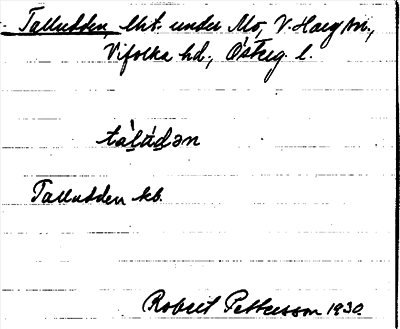 Talludden, lht. under Mo, V. Harg sn.,
Vifolka hd., Östерg. l.
tàl̀úd̀ən
Talludden kb.
Robert Pettersson 1930